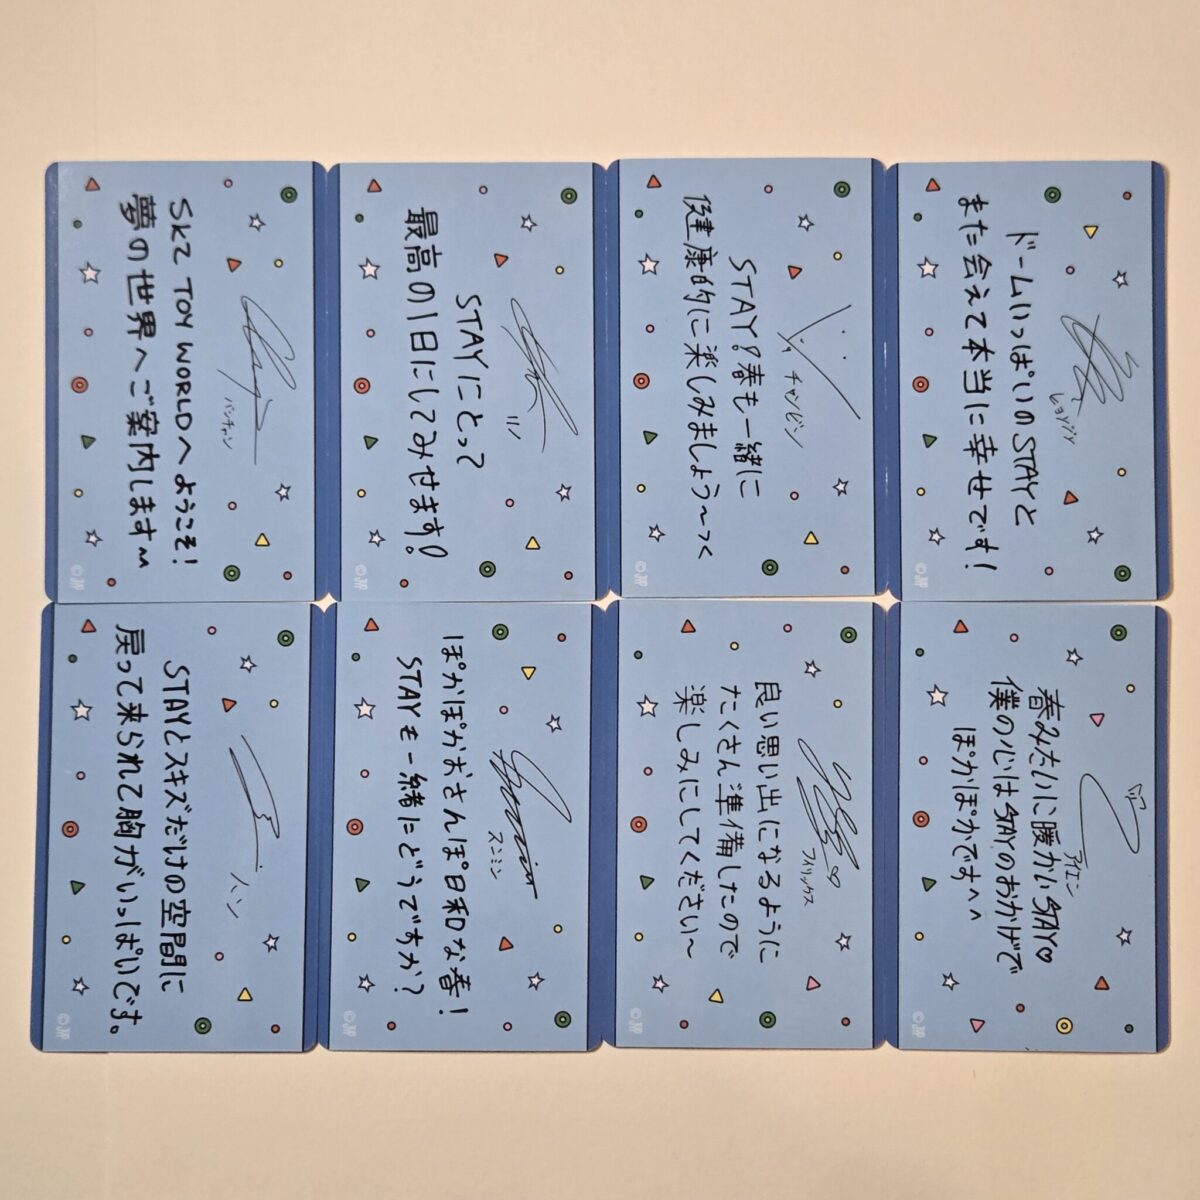 ヒョンジン
ドームいっぱいのSTAYと
また会えて本当に幸せです!
©JYP
アイエン
春みたいに暖かいSTAY♡
僕の心はSTAYのおかげで
ぽかぽかです^^
©JYP
チャンビン
STAY!春も一緒に
健康的に楽しみましょう〜っく
©JYP
フィリックス
良い思い出になるように
たくさん準備したので
楽しみにしてください〜
©JYP
リノ
STAYにとって
最高の1日にしてみせます!
©JYP
スンミン
ぽかぽかおさんぽ日和な春!
STAYも一緒にどうですか?
©JYP
バンチャン
SKZ TOY WORLDへようこそ!
夢の世界へご案内します〜
©JYP
ハン
STAYとスキズだけの空間に
戻って来られて胸がいっぱいです。
©JYP